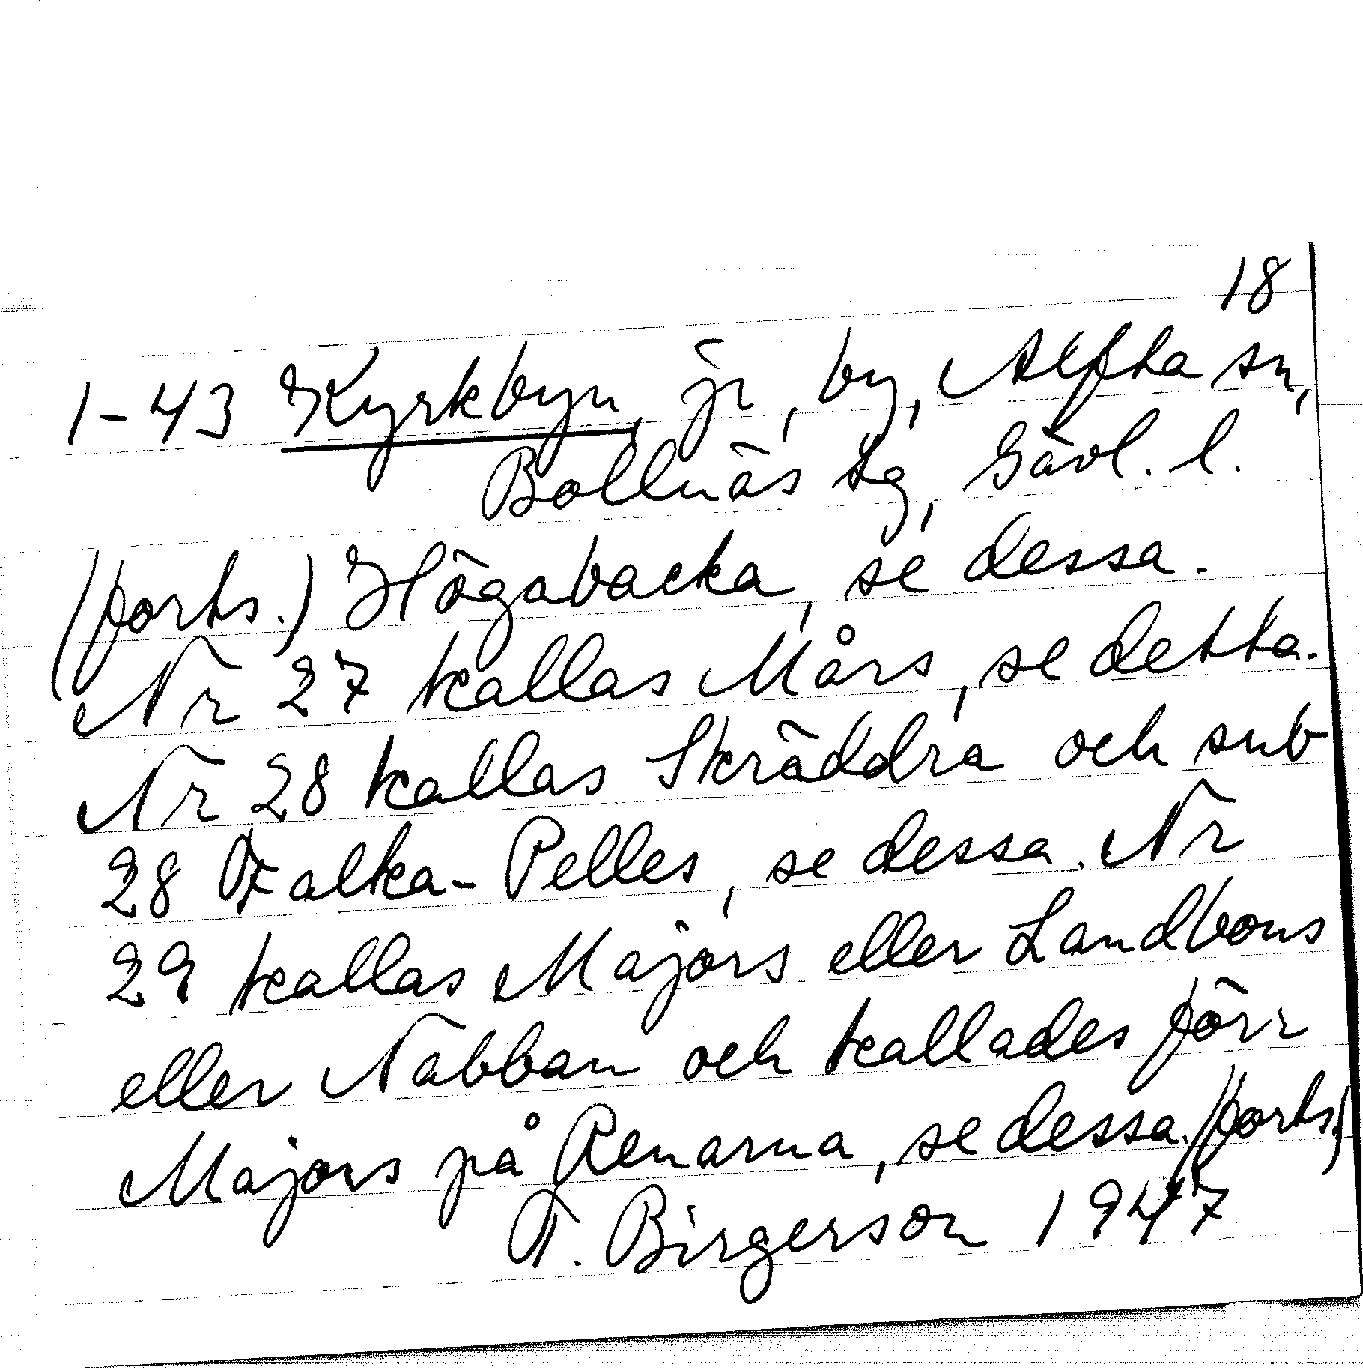 18
1-43 Kyrkbyn, jr, by, Alfta sn,
Bollnäs tg, Gävl. l.
(forts.) Högabacka, se dessa.
Nr 27 kallas Mårs, se detta.
Nr 28 kallas Skräddra och sub
28 Falka-Pelles, se dessa. Nr
29 kallas Majors eller Landbons
eller Nabban och kallades förr
Majors på Renarna, se dessa. (forts.)
T. Birgerson 1947